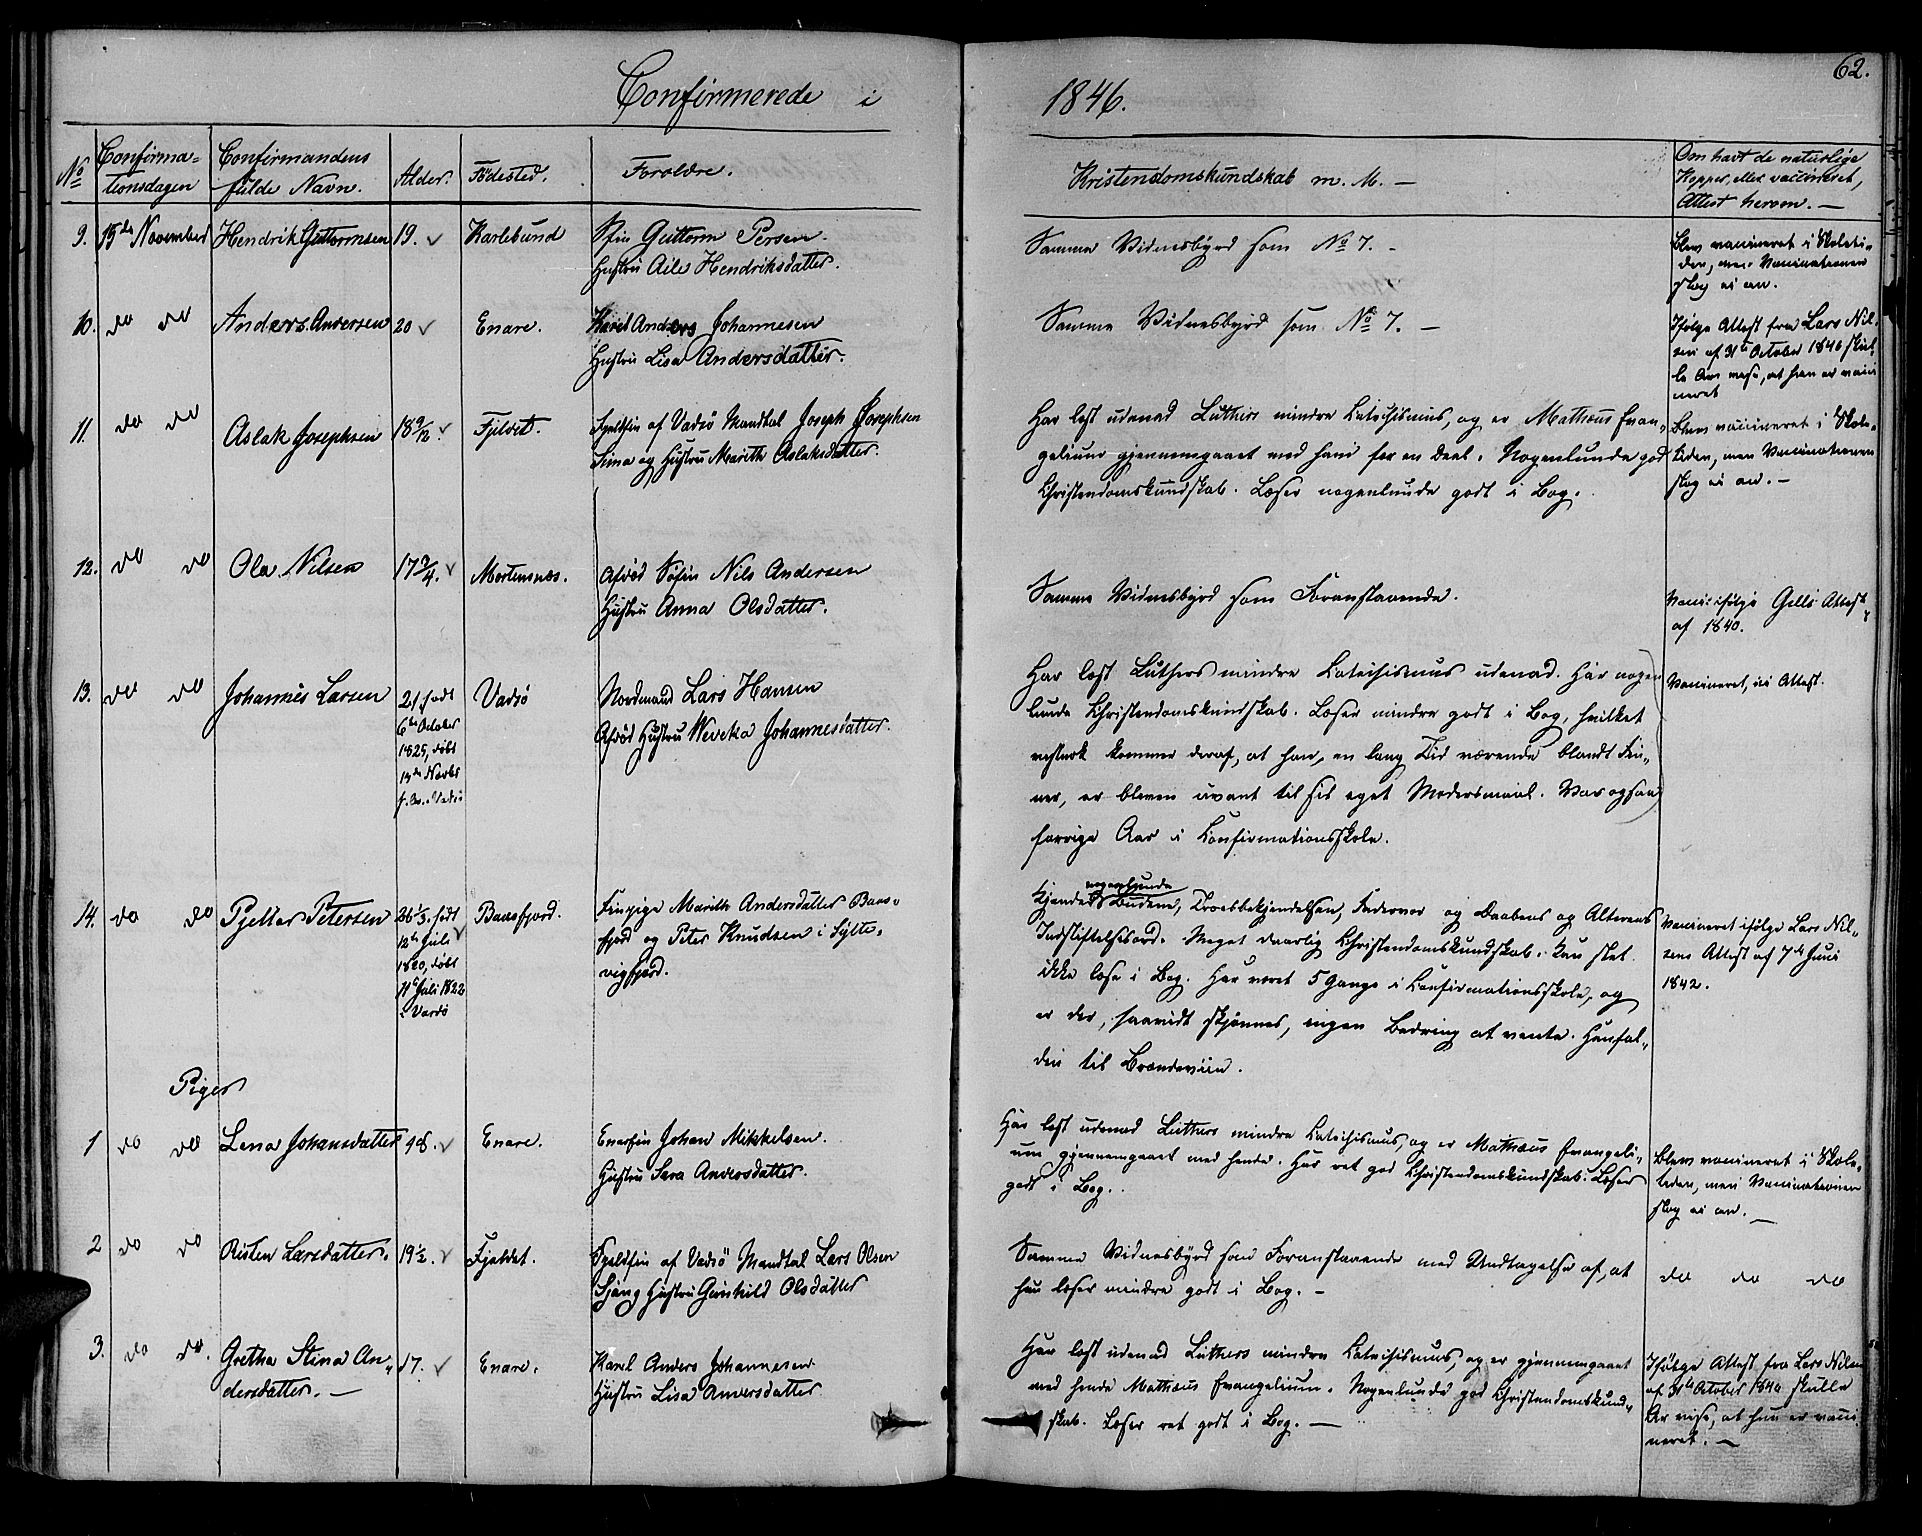 62.
Confirmerede i 1846.
No
Confirma=
tionsdagen
Confirmandens
fulde Navn.
Alder.
Födested.
Foroldre.
Kristendomskundskab m. M. —
Om havt de naturlige
Kopper, eller vaccineret,
Attest herom. —
9. 15de November Hendrik Guttormsen 19. Karlebund
Sfin Guttorm Persen.
Hustru Aile Hendriksdatter.
Samme Vidnesbyrd som No 7. -
Blev vaccineret i Skoleti-
den, men Vaccinationen
slog ei an.
10. do do Anders Andersen 20 Enare.
Karel Anders Johannesen
Hustru Lisa Andersdatter.
Samme Vidnesbyrd som No 7. —
Ifølge Attest fra Lars Nil-
sen af 31te October 1846 skul-
le Arr vise, at han er vacci
neret
11. do do Aslak Josephsen 18 9/12. Fjeldet.
Fjeldfin af Vadsö Mandtal Joseph Josephsen
Sima og Hustru Marith Aslaksdatter.
Har læst udenad Luthers mindre Catechismus, og er Mathæus Evan„
gelium gjennemgaaet med ham for en Deel. Nogenlunde god
Christendomskundskab. Læser nogenlunde godt i Bog.
Blev vaccineret i Skole-
tiden, men Vaccinationen
slog ei an. —
12. do do Ola Nilsen 17 3/4. Mortensnæs.
Afdød Søfin Nils Andersen
Hustru Anna Olsdatter.
Samme Vidnesbyrd som Foranstaaende.
Vacc. ifølge Gells Attest
af 1840.
13. do do Johannes Larsen 21, født Vadsö
6te October
1825, døbt
13de Novbr
s. A. i Vadsö
Nordmand Lars Hansen
Afdød Hustru Weveka Johannesdatter.
Har læst Luthers mindre Catechismus udenad. Har nogen
lunde Christendomskundskab. Læser mindre godt i Bog, hvilket
vistnok kommer deraf, at han, en lang Tid værende blandt Fin„
ner, er bleven uvant til sit eget Modersmaal. Var ogsaa
forrige Aar i Confirmationsskole.
Vaccineret, iii Attest.
14. do do Pjetter Petersen 26 1/3. født Baasfjord.
12te Juli
1820, døbt
11te Juli 1822
i Vardö
Finpige Marith Andersdatter Baas-
fjord og Peter Knudsen i Sylte-
vigfjord.
nogenlunde
Kjender Budene, Troesbekjendelsen, Fadervor og Daabens og Alterens
Indstiftelsesord. Meget daarlig Christendomskundskab. Kan slet
ikke læse i Bog. Har været 5 Gange i Confirmationsskole, og
er der, saavidt skjønnes, ingen Bedring at vente. Henfal„
den til Brændeviin.
Vaccineret ifølge Lars Nil„
sens Attest af 7de Juni
1842.
Piger
1 do do Lena Johansdatter 18. Enare.
Enarefin Johan Mikkelsen.
Hustru Sara Andersdatter.
Har læst udenad Luthers mindre Catechismus, og er Mathæus Evangeli„
um gjennemgaaet med hende. Har ret god Christendomskundskab. Læser
godt i Bog.
Blev vaccineret i Skole„
tiden, men Vaccinationen
slog ei an. —
2 do do Risten Larsdatter. 19 1/2. Fjeldet.
Fjeldfin af Vadsö Mandtal Lars Olsen
Sjang Hustru Gunhild Olsdatter
Samme Vidnesbyrd som Foranstaaende med Undtagelse af, at
hun læser mindre godt i Bog. -
do do do
3. do do. Gretha Stina An„ 17. Enare.
dersdatter. —
Karel Anders Johannesen
Hustru Lisa Andersdatter
Har læst udenad Luthers mindre Catechismus, og er gjennemgaaet
med hende Mathæus Evangelium. Nogenlunde god Christendomskund„
skab. Læser ret godt i Bog. —
Ifølge Attest fra Lars Nilsen
af 31te October 1846 skulle
Ar vise, at hun er vacci
neret. —